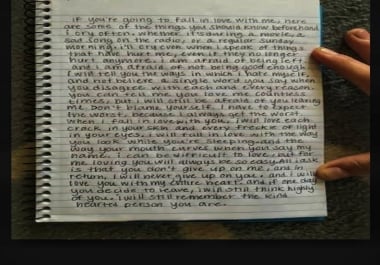 if you're going to fall in love with me, here
are some of the things you should know beforehand
I cry often, whether it's during a movie, a
sad song on the radio, or a regular sunday
morning. I'll cry even when I speak of things
that have hurt me, even if they no longer
hurt anymore. I am afraid of being left
and I am afraid of not being good enough.
I will tell you the ways in which I hate myself,
and not believe a single word you say when
you disagree with each and every reason.
you can tell me you love me countless
times, but I will still be afraid of you leaving
me. Don't blame yourself, I have to expect
the worst, because I always get the worst.
when I fall in love with you, I will love each
crack in your skin and every freckle of light
in your eyes. I will fall in love with the way
you look while you're sleeping and the
way your mouth curves when you say my
name. I can be difficult to love, but for
me, loving you will always be so easy. All I ask
is that you don't give up on me, and in
return, I will never give up on you. and I will
love you with my entire heart. and if one day
you decide to leave, I will still think highly
of you. I will still remember the kind
hearted person you are.